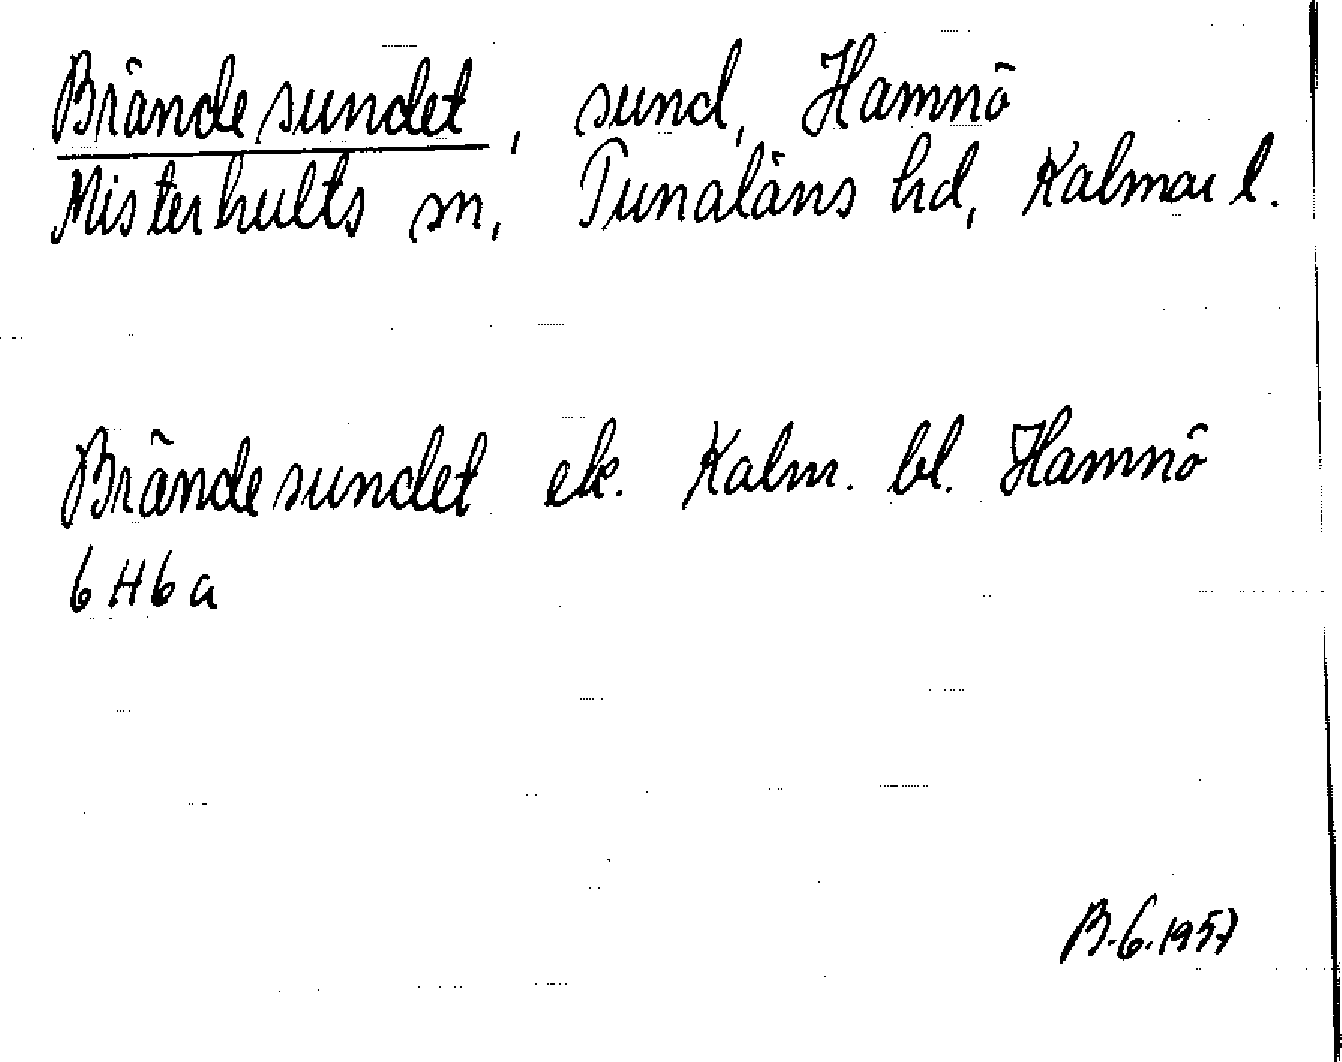 Brändesundet, sund, Hamnö
Misterhults sn, Tunaläns hd, Kalmar l.
Brändesundet ek. Kalm. bl. Hamnö
6 H 6 a
B.G. 1957